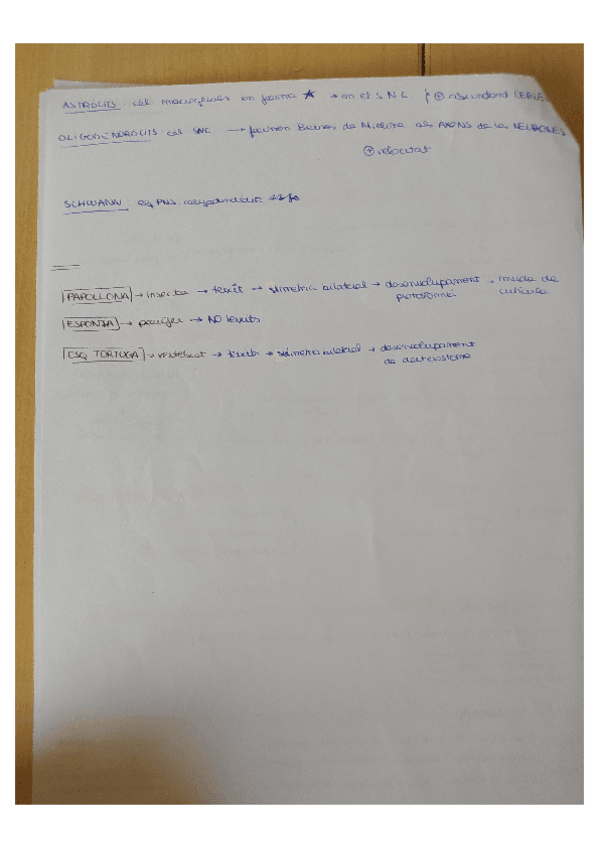 ASTRÒCITS: cèl macrogliales en forma ★ → en el S.N.C. ⊕ abundand CEREB
OLIGODENDROCITS: cèl SNC → formen Beines de Mielina als AXONS de les NEURONES
⊕ velocitat
SCHWANN: PNS
PAPOLLONA → insecta → teixit → simetria bilateral → desenvolupament → muda de
protostomei cutícula
ESPONJA → porifer → NO teixits
ESQ TORTUGA → vertebrat → teixits → simetria bilateral → desenvolupament
de deuterostome